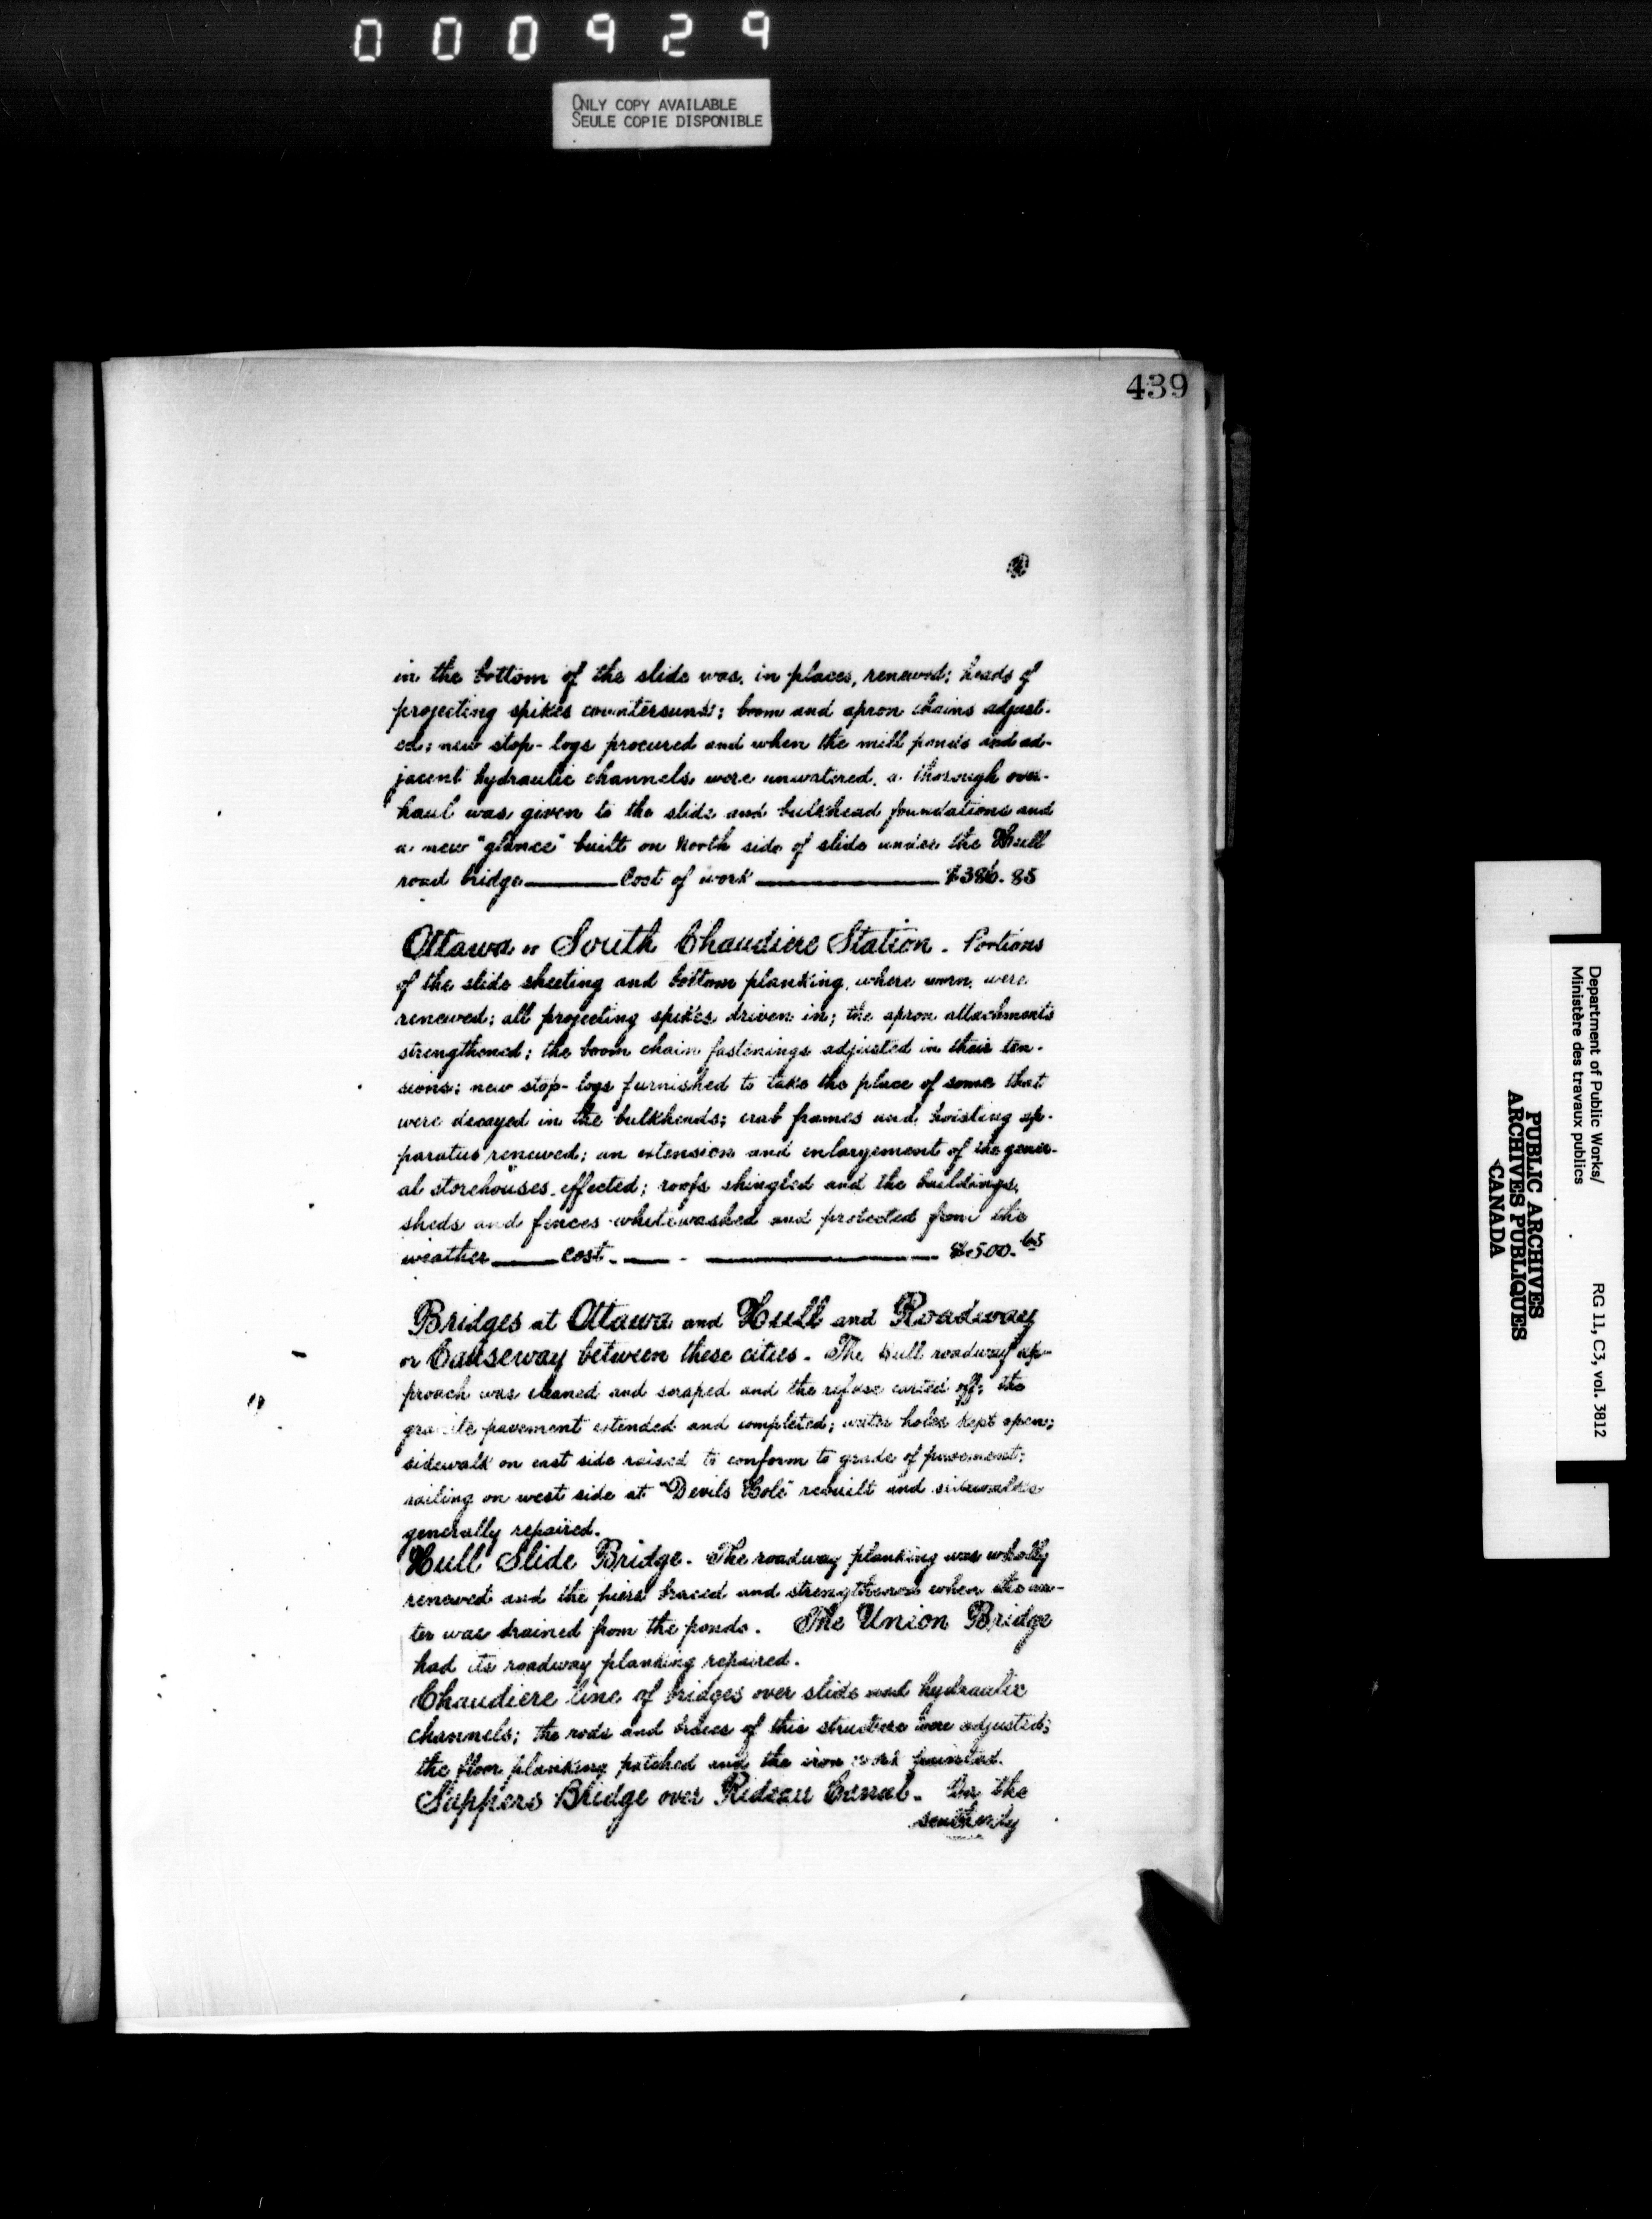 000929
ONLY COPY AVAILABLE
SEULE COPIE DISPONIBLE
439
in the bottom of the slide was, in places, renewed; heads of
projecting spikes countersunk; boom and apron chains adjust-
ed; new stop-logs procured and when the mill ponds and ad-
jacent hydraulic channels were unwatered, a thorough over-
haul was given to the slide and bulkhead foundations and
a new "glance" built on North side of slide under the Hull
road bridge Cost of work $386.85
Ottawa or South Chaudiere Station. Portions
of the slide sheeting and bottom planking, where worn, were
renewed; all projecting spikes driven in; the apron attachments
strengthened; the boom chain fastenings adjusted in their ten-
sions; new stop-logs furnished to take the place of some that
were decayed in the bulkheads; crab frames and hoisting ap-
paratus renewed; an extension and enlargement of the gener-
al storehouses effected; roofs shingled and the buildings,
sheds and fences whitewashed and protected from the
weather cost $500.
Bridges at Ottawa and Hull and Roadway
or Causeway between these cities. The Hull roadway ap-
proach was cleaned and scraped and the refuse carted off; the
granite pavement extended and completed; water holes kept open;
sidewalk on east side raised to conform to grade of pavement;
railing on west side at "Devils Hole" rebuilt and sidewalks
generally repaired.
Hull Slide Bridge. The roadway planking was wholly
renewed and the piers braced and strengthened when the wa-
ter was drained from the ponds. The Union Bridge
had its roadway planking repaired.
Chaudiere line of bridges over slide and hydraulic
channels; the rods and braces of this structure were adjusted;
the floor planking patched and the iron work painted.
Sappers Bridge over Rideau Canal. On the
southerly
Department of Public Works/
Ministère des travaux publics
RG 11, C3, vol. 3812
PUBLIC ARCHIVES
ARCHIVES PUBLIQUES
CANADA